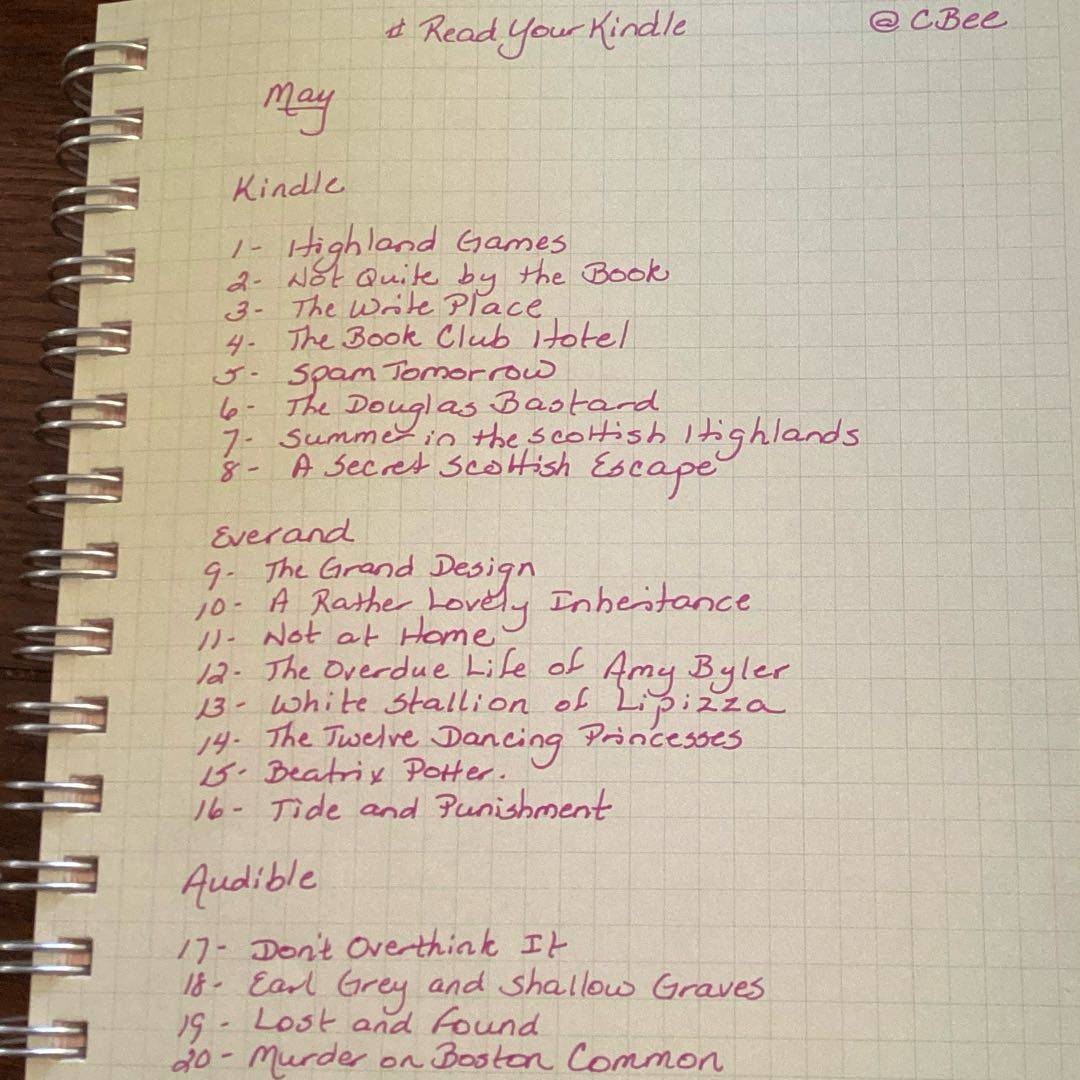 #ReadYourKindle @CBee
May
Kindle
1- Highland Games
2- Not Quite by the Book
3- The Write Place
4- The Book Club Hotel
5- Spam Tomorrow
6- The Douglas Bastard
7- Summer in the Scottish Highlands
8- A Secret Scottish Escape
Everand
9- The Grand Design
10- A Rather Lovely Inheritance
11- Not at Home
12- The Overdue Life of Amy Byler
13- White Stallion of Lipizza
14- The Twelve Dancing Princesses
15- Beatrix Potter.
16- Tide and Punishment
Audible
17- Don't Overthink It
18- Earl Grey and Shallow Graves
19- Lost and Found
20- Murder on Boston Common